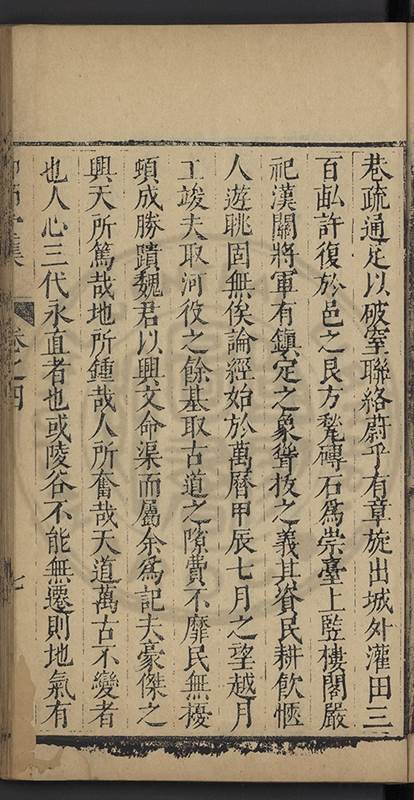 巷疏通足以破窒聯絡蔚乎有章旋出城外灌田三
百畝許復於邑之艮方甃磚石爲崇臺上竪樓閣嚴
祀漢關將軍有鎮定之象聳拔之義其眷民耕飲愜
人遊眺固無俟論經始於萬曆甲辰七月之望越月
工竣夫取河役之餘基取古道之隙費不靡民無擾
頓成勝蹟魏君以興文命渠而屬余爲記夫豪傑之
興天所篤哉地所鍾哉人所奮哉天道萬古不變者
也人心三代永直者也或陵谷不能無遷則地氣有
集 卷之四 七